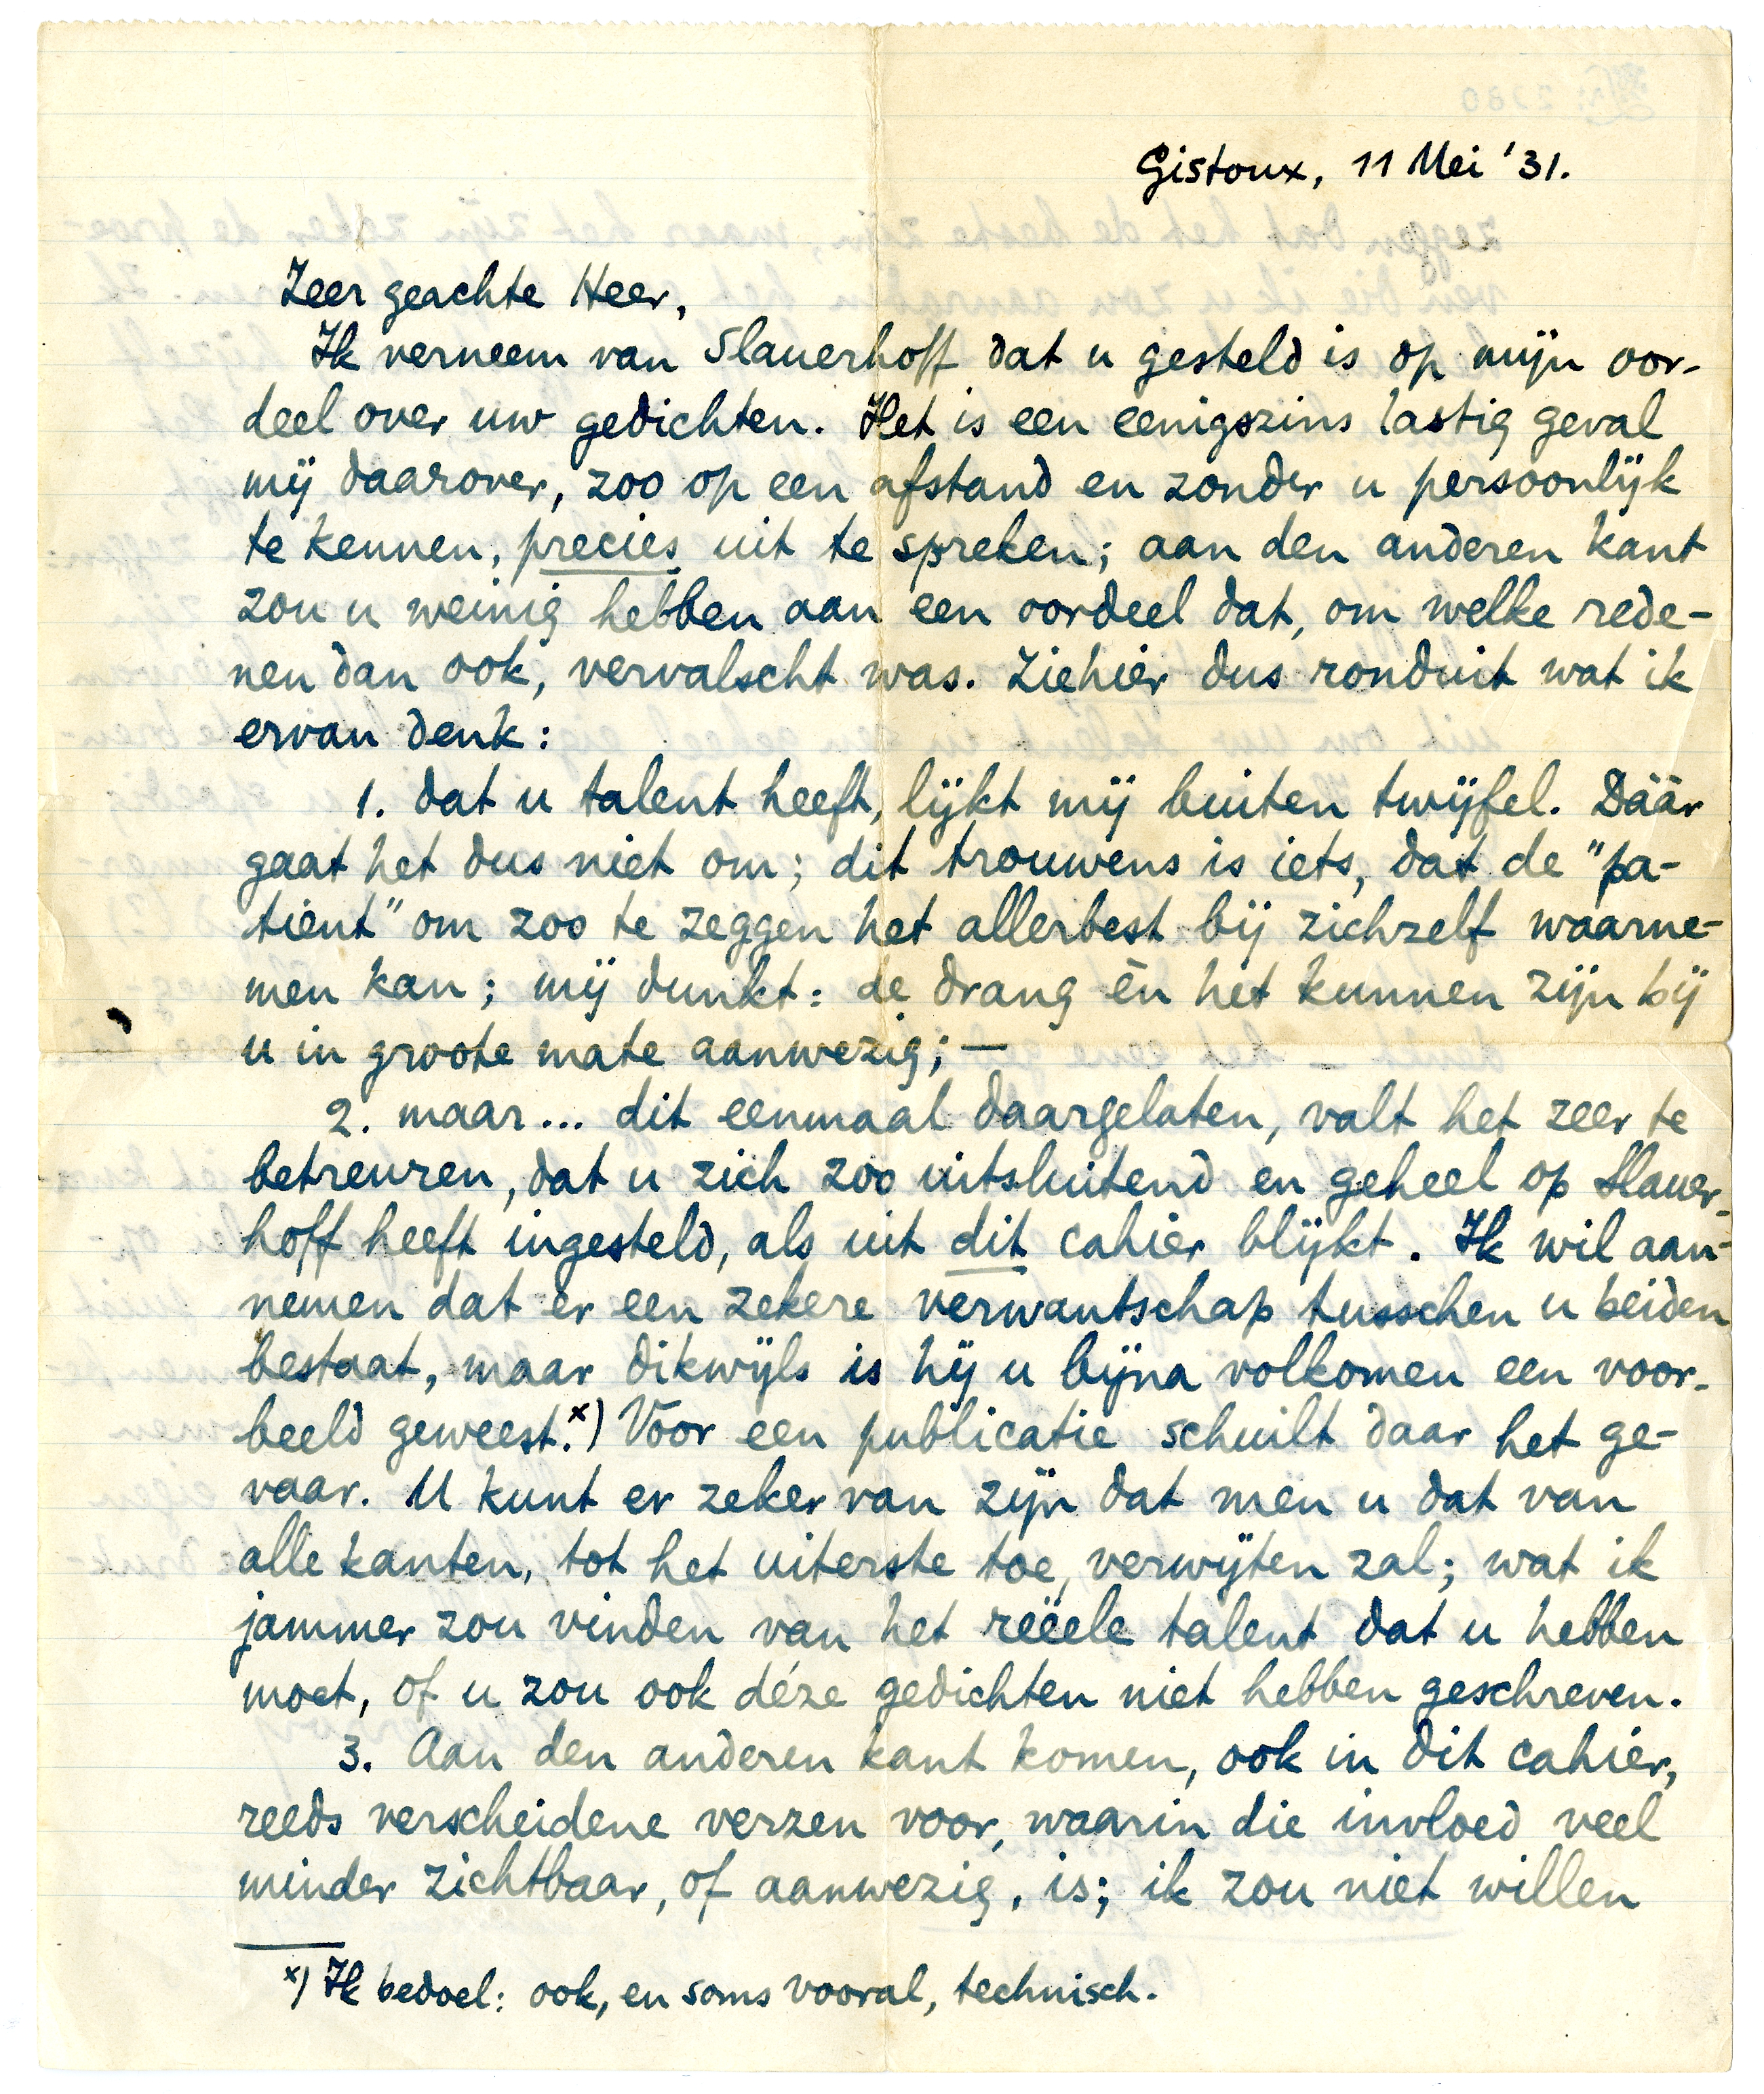 Gistoux, 11 Mei '31.
Zeer geachte Heer,
Ik verneem van Slauerhoff dat u gesteld is op mijn oor-
deel over uw gedichten. Het is een eenigszins lastig geval
mij daarover, zoo op een afstand en zonder u persoonlijk
te kennen, precies uit te spreken; aan den anderen kant
zou u weinig hebben aan een oordeel dat, om welke rede-
nen dan ook, vervalscht was. Ziehier dus ronduit wat ik
ervan denk:
1. dat u talent heeft, lijkt mij buiten twijfel. Dáár
gaat het dus niet om; dit trouwens is iets, dat de "pa-
tient" om zoo te zeggen het allerbest bij zichzelf waarne-
men kan; mij dunkt: de drang èn het kunnen zijn bij
u in groote mate aanwezig; —
2. maar... dit eenmaal daargelaten, valt het zeer te
betreuren, dat u zich zoo uitsluitend en geheel op Slauer-
hoff heeft ingesteld, als uit dit cahier blijkt. Ik wil aan-
nemen dat er een zekere verwantschap tusschen u beiden
bestaat, maar dikwijls is hij u bijna volkomen een voor-
beeld geweest.x) Voor een publicatie schuilt daar het ge-
vaar. U kunt er zeker van zijn dat men u dat van
alle kanten, tot het uiterste toe, verwijten zal; wat ik
jammer zou vinden van het reëele talent dat u hebben
moet, of u zou ook déze gedichten niet hebben geschreven.
3. Aan den anderen kant komen, ook in dit cahier,
reeds verscheidene verzen voor, waarin die invloed veel
minder zichtbaar, of aanwezig, is; ik zou niet willen
x) Ik bedoel: ook, en soms vooral, technisch.